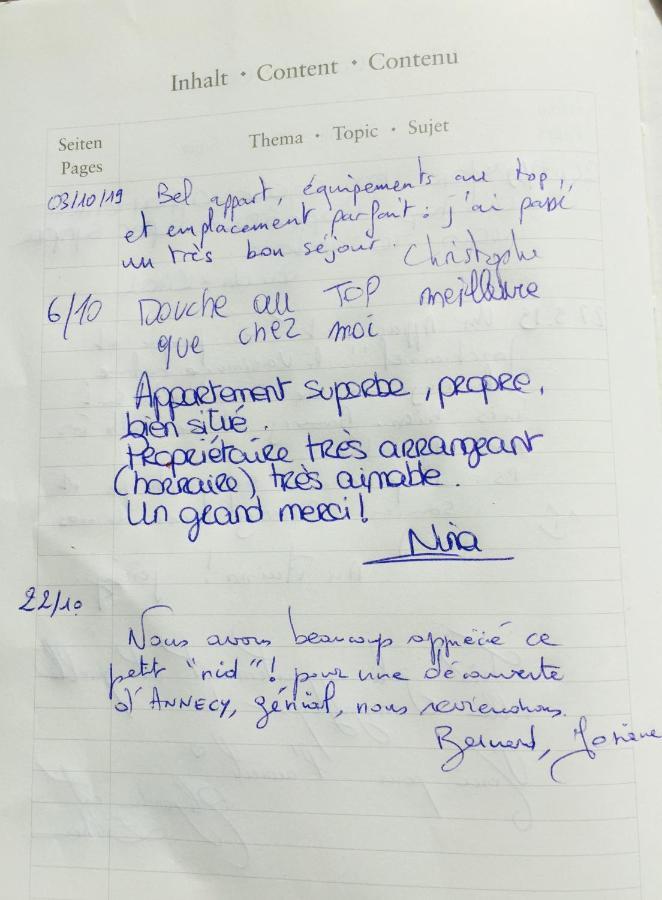 Inhalt • Content • Contenu
Seiten
Pages
Thema • Topic • Sujet
03/10/19 Bel appart, équipements au top,
et emplacement parfait : j'ai passé
un très bon séjour. Christophe
6/10 Douche au TOP meilleure
que chez moi
Appartement superbe, propre,
bien situé.
Propriétaire très arrangeant
(horraire) très aimable.
Un grand merci!
Nina
22/10
Nous avons beaucoup apprécié ce
petit "nid"! pour une découverte
d'ANNECY, génial, nous reviendrons.
Bernard, Josiane